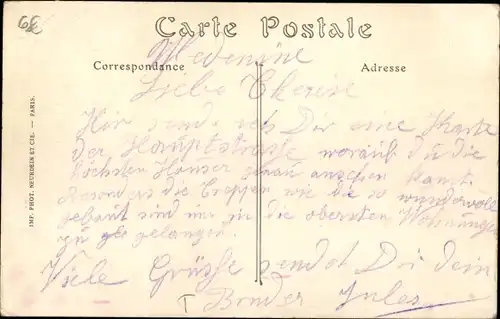 6€
Carte Postale
Medenine
Correspondance
Adresse
Liebe Therese
Hir send ich Dir eine Karte
der Hauptstrasse worauf du die
höchsten Häuser genau ansehen kannst.
Besonders die Treppen wie die so wundervoll
gebaut sind um in die obersten Wohnungen
zu gelangen.
Viele Grüsse sendet Dir dein
Bruder Jules
IMP. PHOT. NEURDEIN ET CIE. — PARIS.